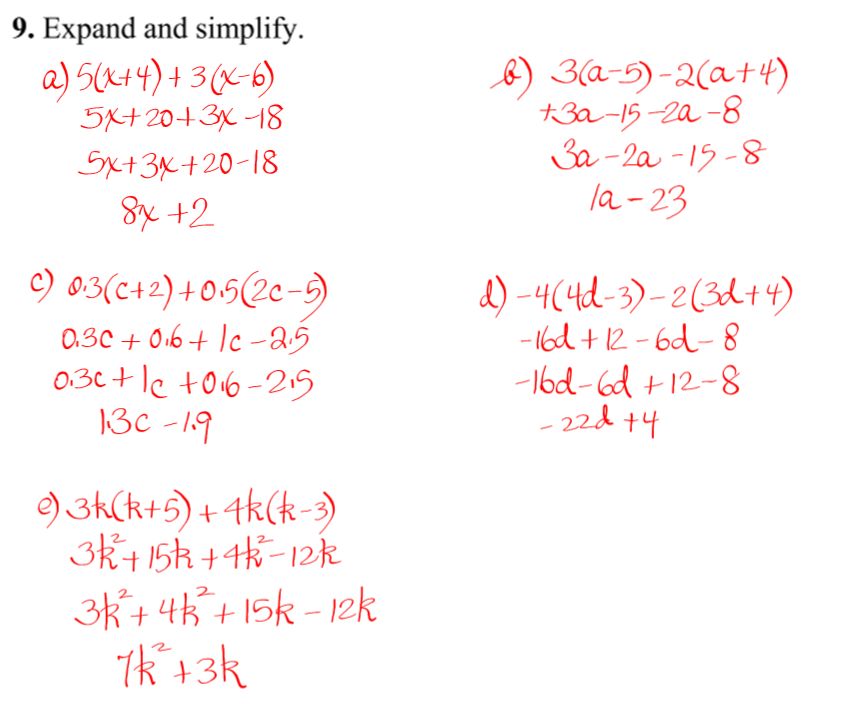 9. Expand and simplify.
a) 5(x+4) + 3(x-6)
5x+20+3x-18
5x+3x+20-18
8x +2
b) 3(a-5)-2(a+4)
+3a-15-2a-8
3a-2a-15-8
1a-23
c) 0.3(c+2)+0.5(2c-5)
0.3c + 0.6 + 1c -2.5
0.3c + 1c +0.6 -2.5
1.3c -1.9
d) -4(4d-3)-2(3d+4)
-16d+12-6d-8
-16d-6d+12-8
-22d+4
e) 3k(k+5)+4k(k-3)
3k²+15k+4k²-12k
3k²+4k²+15k-12k
7k²+3k